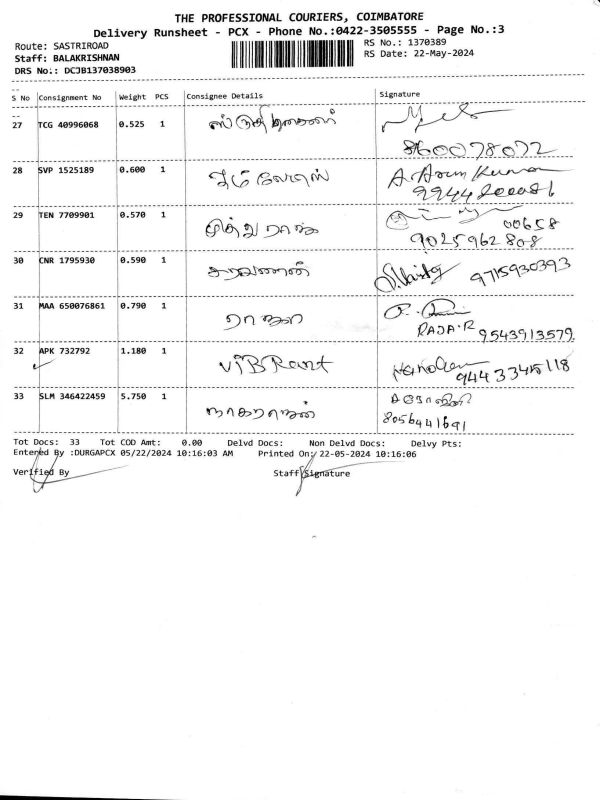 THE PROFESSIONAL COURIERS, COIMBATORE
Delivery Runsheet - PCX - Phone No.:0422-3505555 - Page No.:3
Route: SASTRIROAD
RS No.: 1370389
Staff: BALAKRISHNAN
RS Date: 22-May-2024
DRS No.: DCJB137038903
S No Consignment No Weight PCS Consignee Details Signature
27 TCG 40996068 0.525 1
860078072
28 SVP 1525189 0.600 1
A. Arun Kumar
29 TEN 7709901 0.570 1 முத்து ராஜ
00658
9025962808
30 CNR 1795930 0.590 1 சரவணன்
9715930393
31 MAA 650076861 0.790 1 ராஜா
RAJA.R 9543913579
32 APK 732792 1.180 1 ViBRant
9443345118
33 SLM 346422459 5.750 1 நாகராஜன்
8056441691
Tot Docs: 33 Tot COD Amt: 0.00 Delvd Docs: Non Delvd Docs: Delvy Pts:
Entered By :DURGAPCX 05/22/2024 10:16:03 AM Printed On: 22-05-2024 10:16:06
Verified By Staff Signature